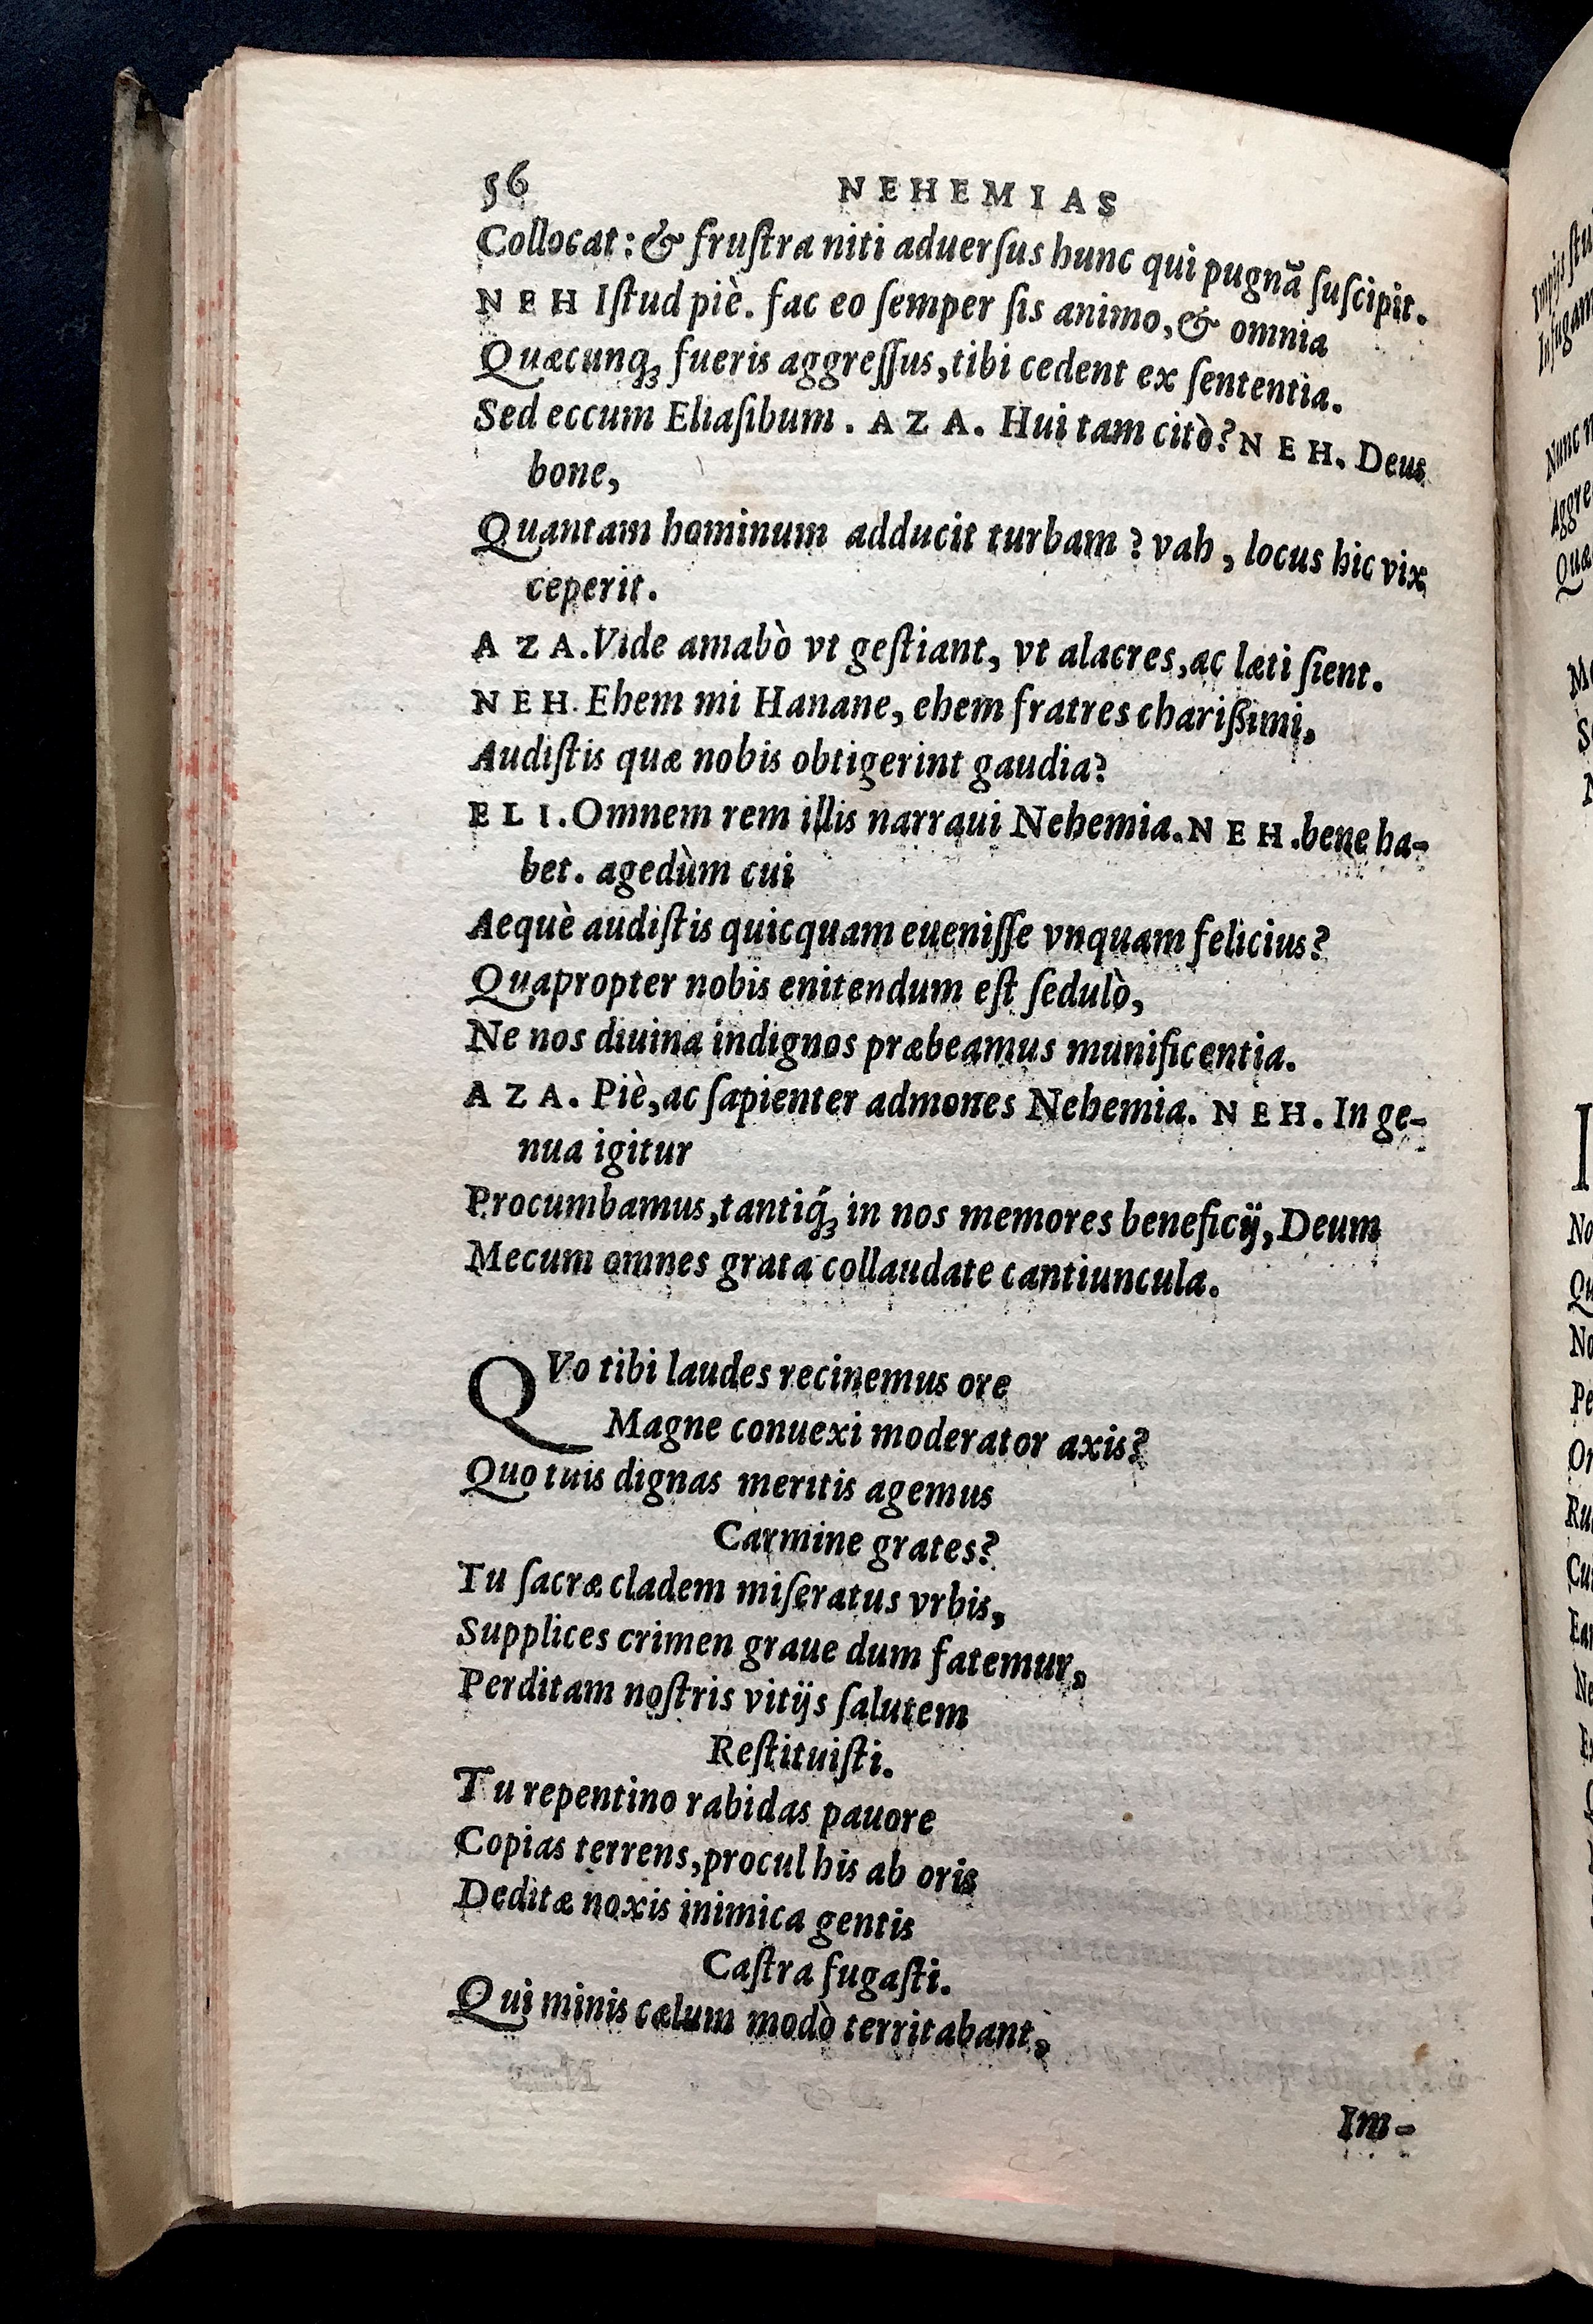 56 NEHEMIAS
Collocat: & fruſtra niti aduerſus hunc qui pugnā ſuſcipit.
NEH Iſtud piè. fac eo ſemper ſis animo, & omnia
Quæcunq; fueris aggreſſus, tibi cedent ex ſententia.
Sed eccum Eliaſibum. AZA. Hui tam citò? NEH. Deus
bone,
Quantam hominum adducit turbam? vah, locus hic vix
ceperit.
AZA. Vide amabò vt geſtiant, vt alacres, ac læti ſient.
NEH. Ehem mi Hanane, ehem fratres chariſsimi,
Audiſtis quæ nobis obtigerint gaudia?
ELI. Omnem rem illis narraui Nehemia. NEH. bene ha-
bet. agedùm cui
Aequè audiſtis quicquam eueniſſe vnquam felicius?
Quapropter nobis enitendum eſt ſedulò,
Ne nos diuina indignos præbeamus munificentia.
AZA. Piè, ac ſapienter admones Nehemia. NEH. In ge-
nua igitur
Procumbamus, tantiq́; in nos memores beneficij, Deum
Mecum omnes grata collaudate cantiuncula.
QVo tibi laudes recinemus ore
Magne conuexi moderator axis?
Quo tuis dignas meritis agemus
Carmine grates?
Tu ſacræ cladem miſeratus vrbis,
Supplices crimen graue dum fatemur,
Perditam noſtris vitijs ſalutem
Reſtituiſti.
Tu repentino rabidas pauore
Copias terrens, procul his ab oris
Deditæ noxis inimica gentis
Caſtra fugaſti.
Qui minis cælum modò territabant,
Im-